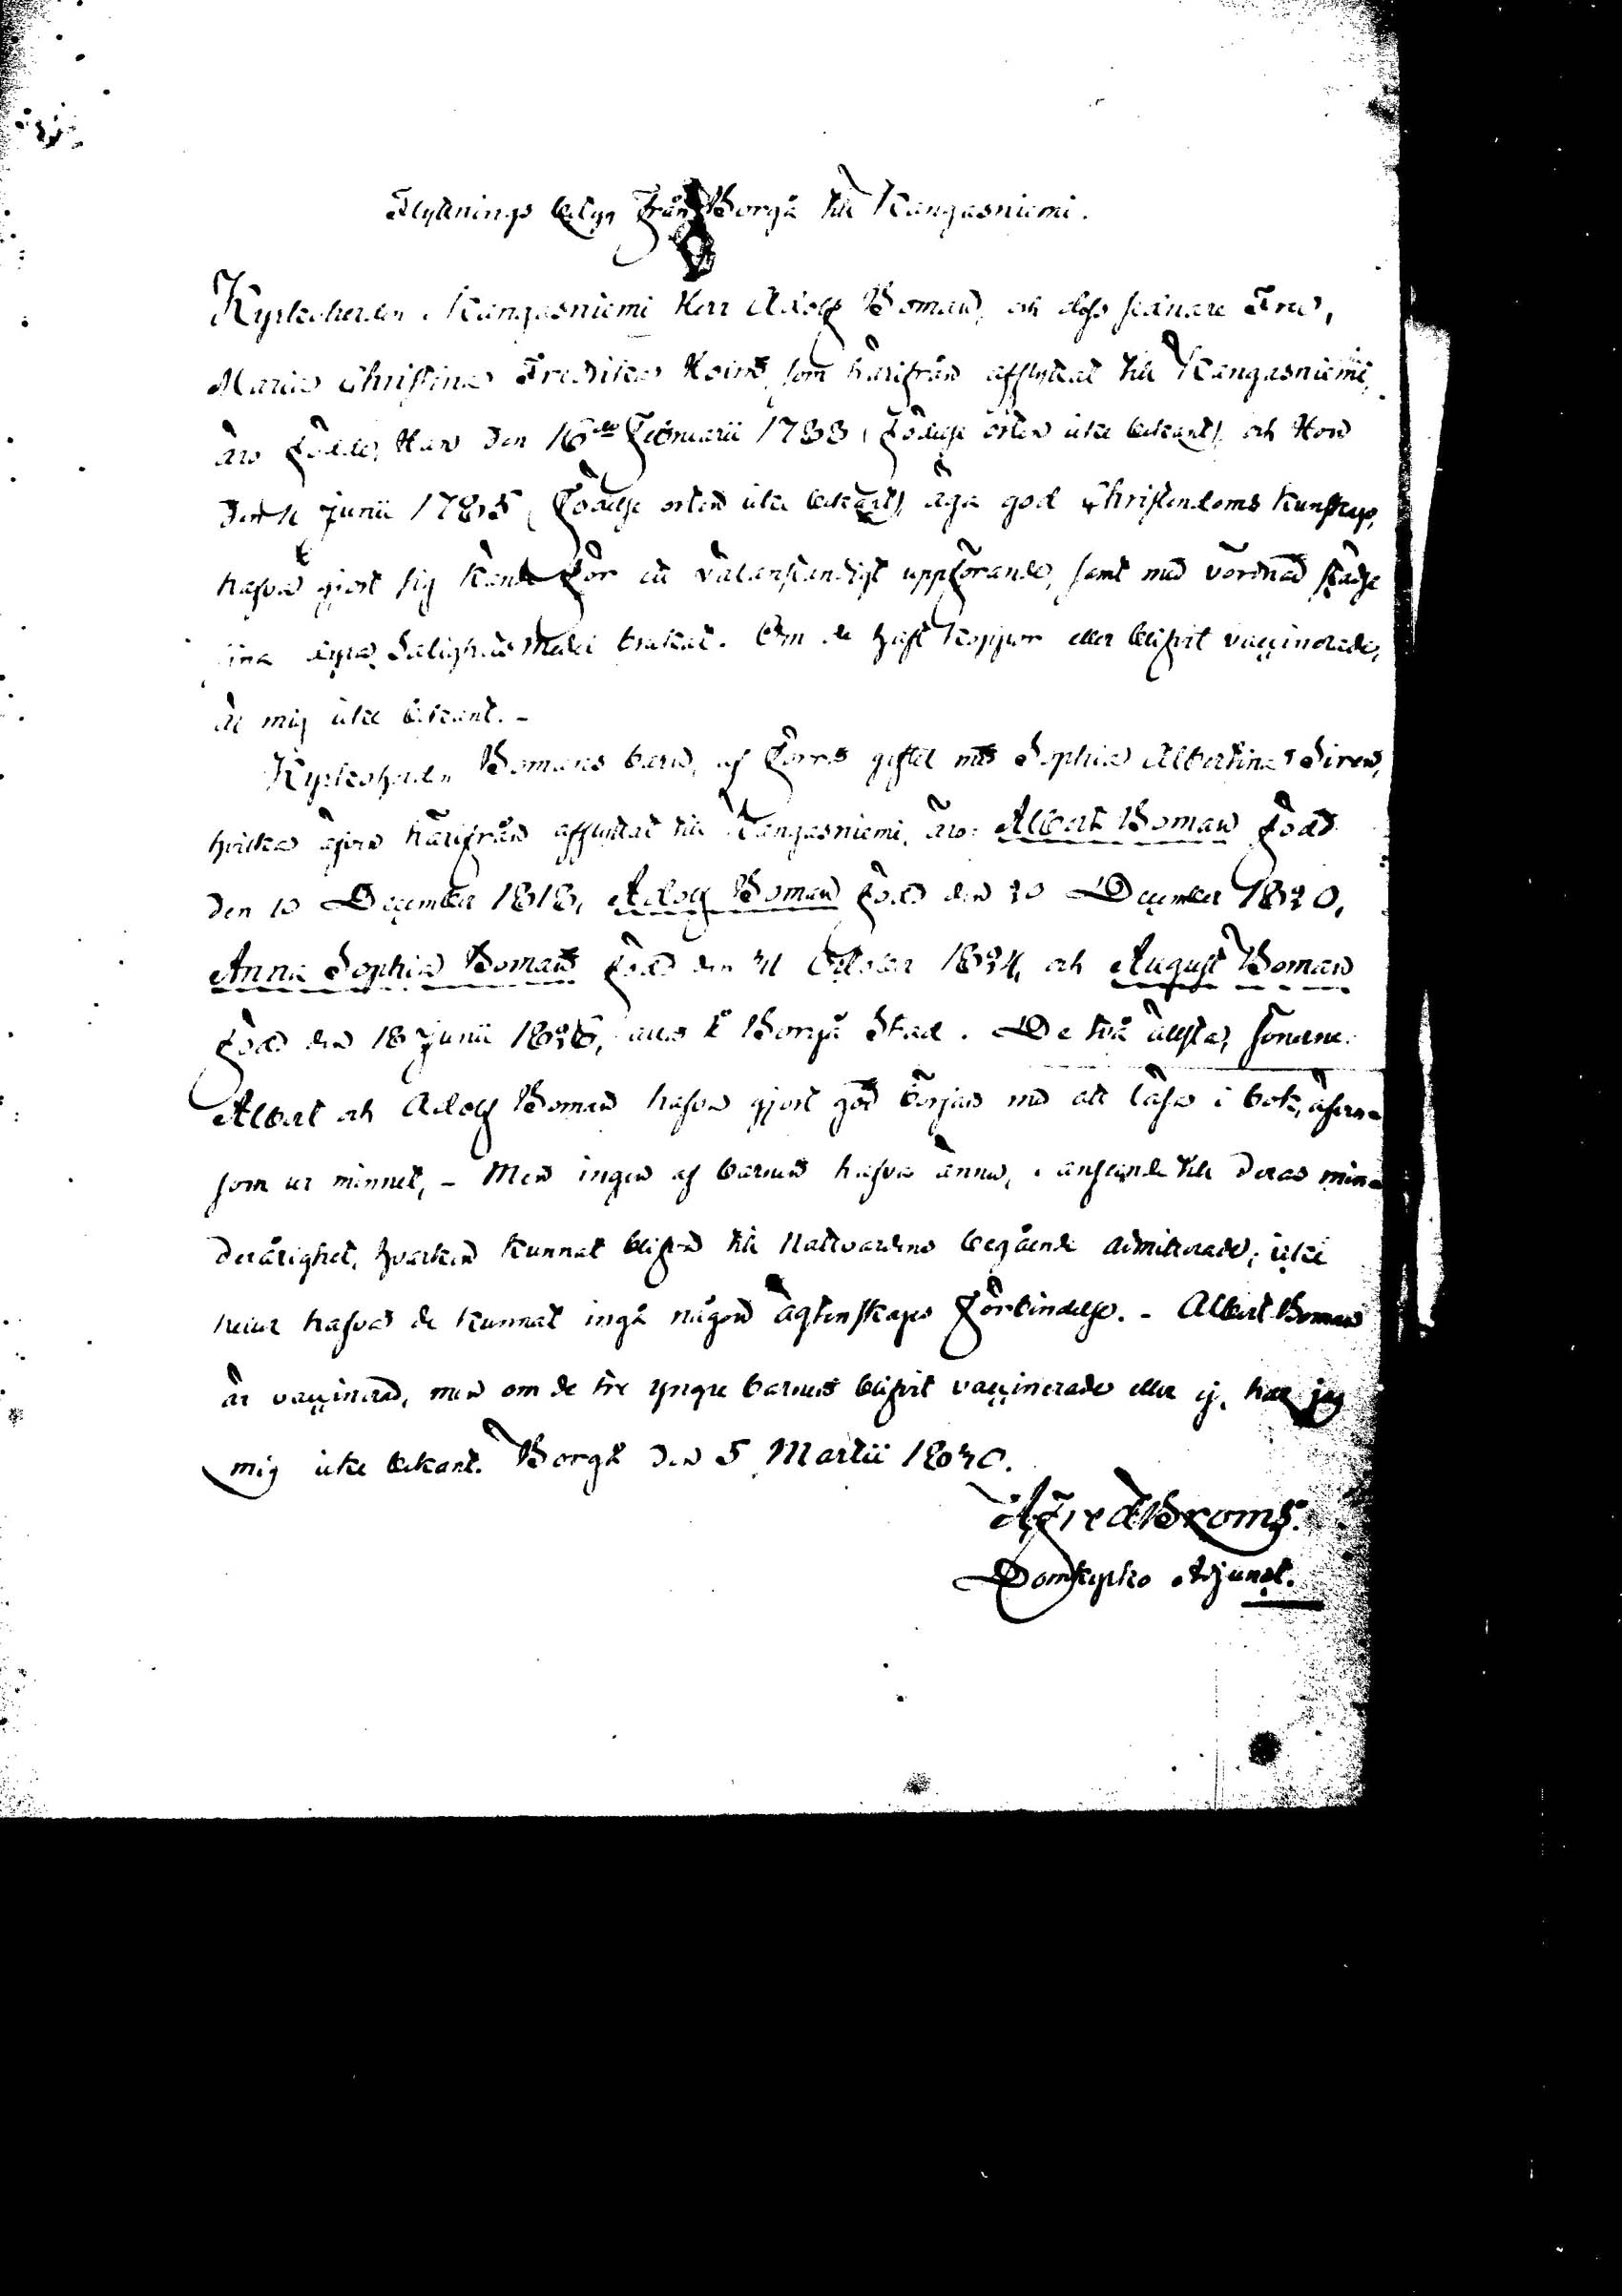 Flyttnings betyg från Borgå till Kangasniemi.
Kyrkoherden i Kangasniemi Herr Adolf Boman, och dess sednare Fru,
Maria Christina Fredrika som härifrån afflyttat till Kangasniemi,
äro födde, Han den 16de Februarii 1788 (födelse orten icke bekant), och Hon
den 11 Junii 1785 (födelse orten icke bekant), äga god Christendoms kunskap,
hafva gjort sig kände för ett välanständigt uppförande, samt med vördnad städse
sina dyra Salighets Medel brukat. Om de haft koppor eller blifvit vaccinerade,
är mig icke bekant. -
Kyrkoherden Bomans barn, af förra giftet med Sophia Albertina Siren,
hvilka äfven härifrån afflyttat till Kangasniemi, äro: Albert Boman född
den 10 December 1818, Adolf Boman född den 20 December 1820,
Anna Sophia Boman född den 31 October 1824, och August Boman
född den 18 Junii 1826, alla i Borgå Stad. De två äldsta, sönerne
Albert och Adolf Boman hafva gjort god början med att läsa i bok, äfven
som ur minnet, - Men ingen af barnen hafva ännu, i anseende till deras min-
derårighet, hvarken kunnat blifva till Nattvardens begående admitterade; icke
heller hafva de kunnat ingå någon ägtenskaps förbindelse. - Albert Boman
är vaccinerad, men om de tre yngre barnen blifvit vaccinerade eller ej, har jag
mig icke bekant. Borgå den 5 Martii 1830.
Alfred Broms.
Domkyrko Adjunct.